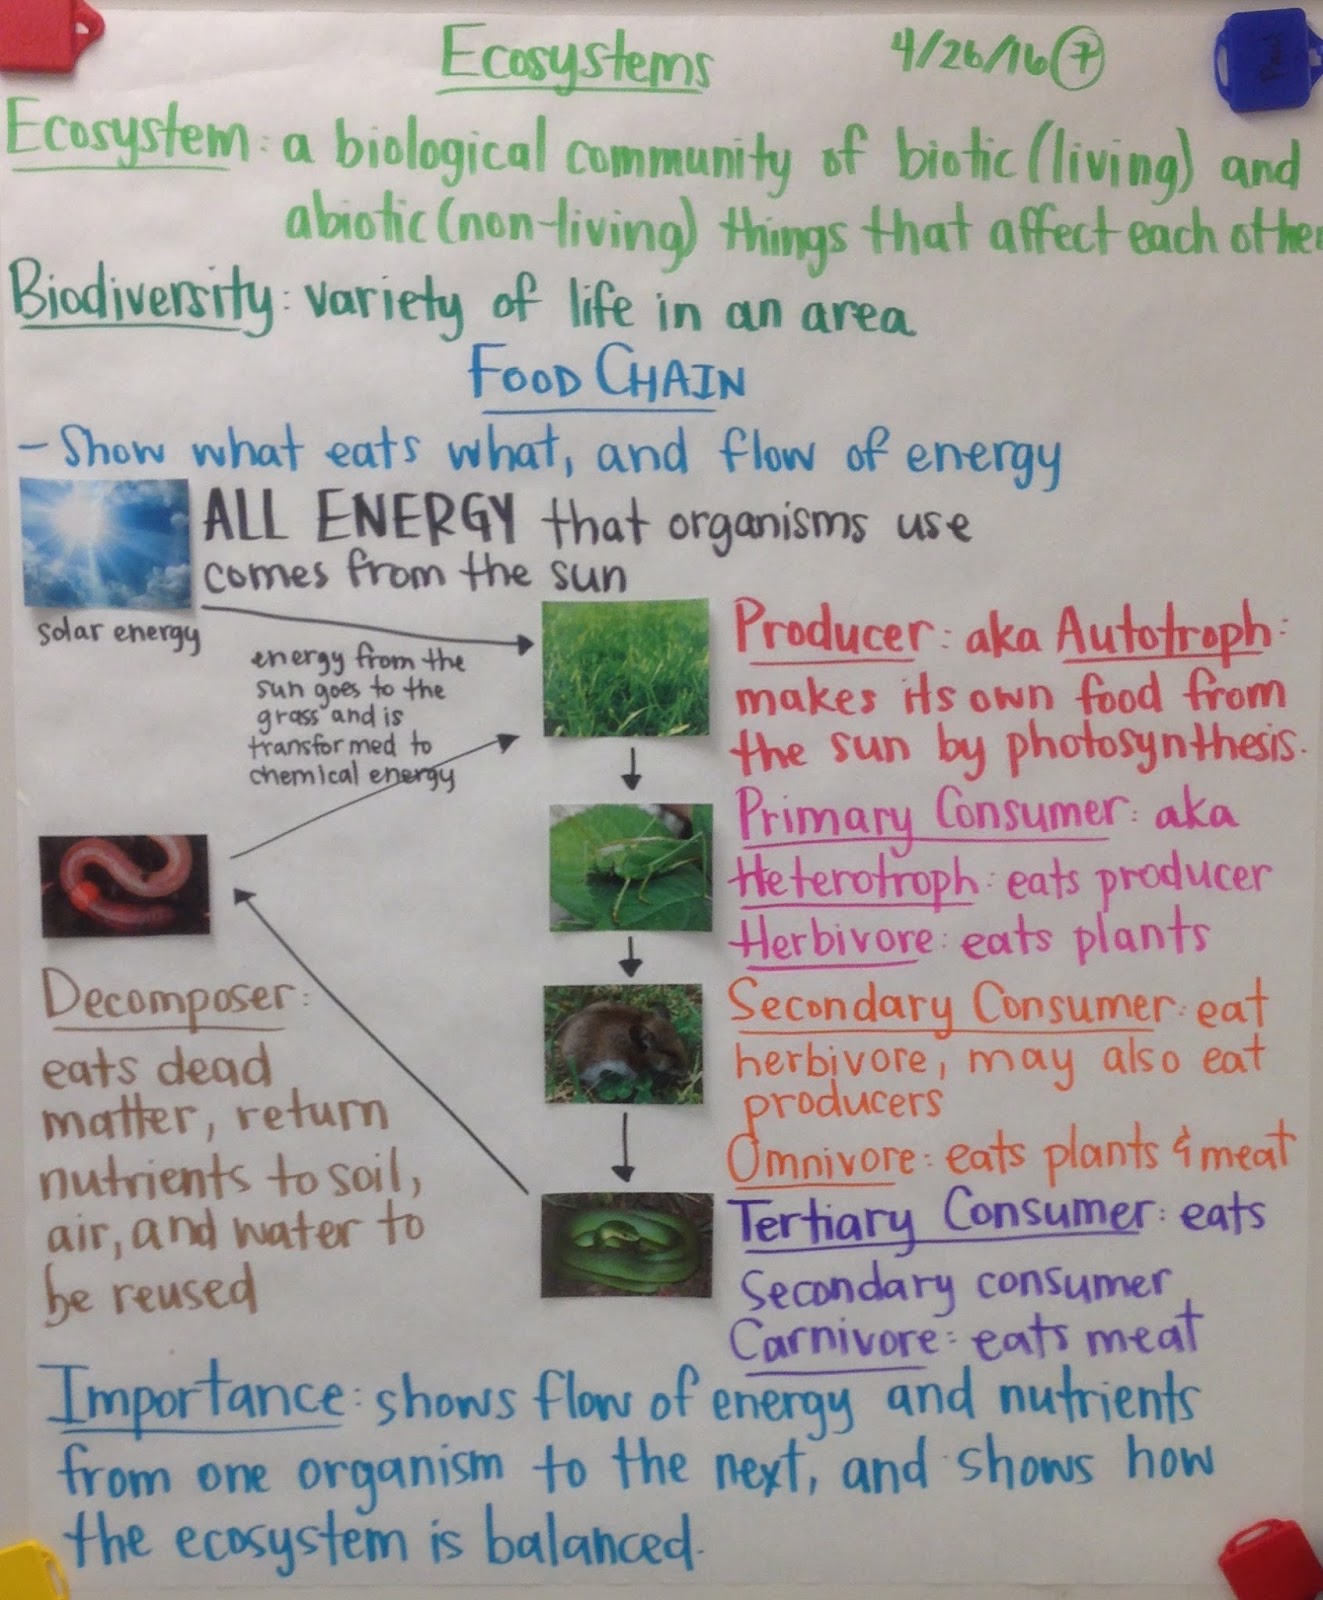 Ecosystems 4/26/16 7
Ecosystem: a biological community of biotic (living) and
abiotic (non-living) things that affect each other
Biodiversity: variety of life in an area
FOOD CHAIN
- Show what eats what, and flow of energy
ALL ENERGY that organisms use
comes from the sun
solar energy
energy from the
sun goes to the
grass and is
transformed to
chemical energy
Producer: aka Autotroph:
makes its own food from
the sun by photosynthesis.
Primary Consumer: aka
Heterotroph: eats producer
Herbivore: eats plants
Secondary Consumer: eat
herbivore, may also eat
producers
Omnivore: eats plants & meat
Tertiary Consumer: eats
Secondary consumer
Carnivore: eats meat
Decomposer:
eats dead
matter, return
nutrients to soil,
air, and water to
be reused
Importance: shows flow of energy and nutrients
from one organism to the next, and shows how
the ecosystem is balanced.